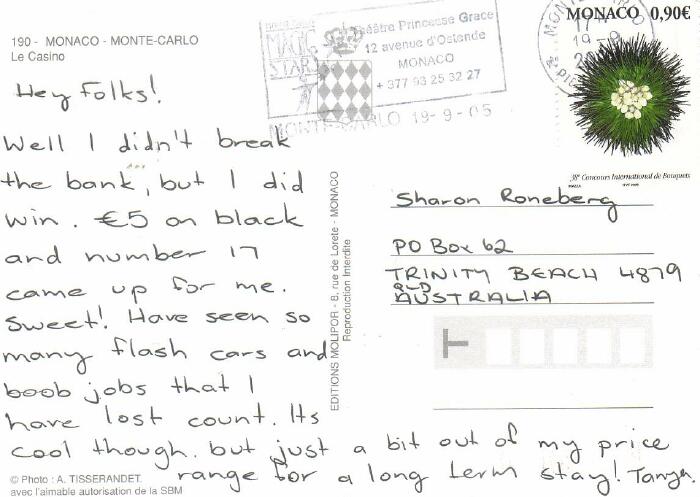 190 - MONACO - MONTE-CARLO
Le Casino
MAGIC
STARS
Théâtre Princesse Grace
12 avenue d'Ostende
MONACO
+ 377 93 25 32 27
MONTE-CARLO 19-9-05
MONACO 0,90€
17
19-9
38e Concours International de Bouquets
Hey Folks!
Well I didn't break
the bank, but I did
win. €5 on black
and number 17
came up for me.
Sweet! Have seen so
many flash cars and
boob jobs that I
have lost count. Its
cool though. but just a bit out of my price
range for a long term stay! Tanya.
EDITIONS MOLIPOR - 8, rue de Lorete - MONACO
Reproduction Interdite
Sharon Roneberg
PO Box 62
TRINITY BEACH 4879
QLD
AUSTRALIA
© Photo : A. TISSERANDET.
avec l'aimable autorisation de la SBM